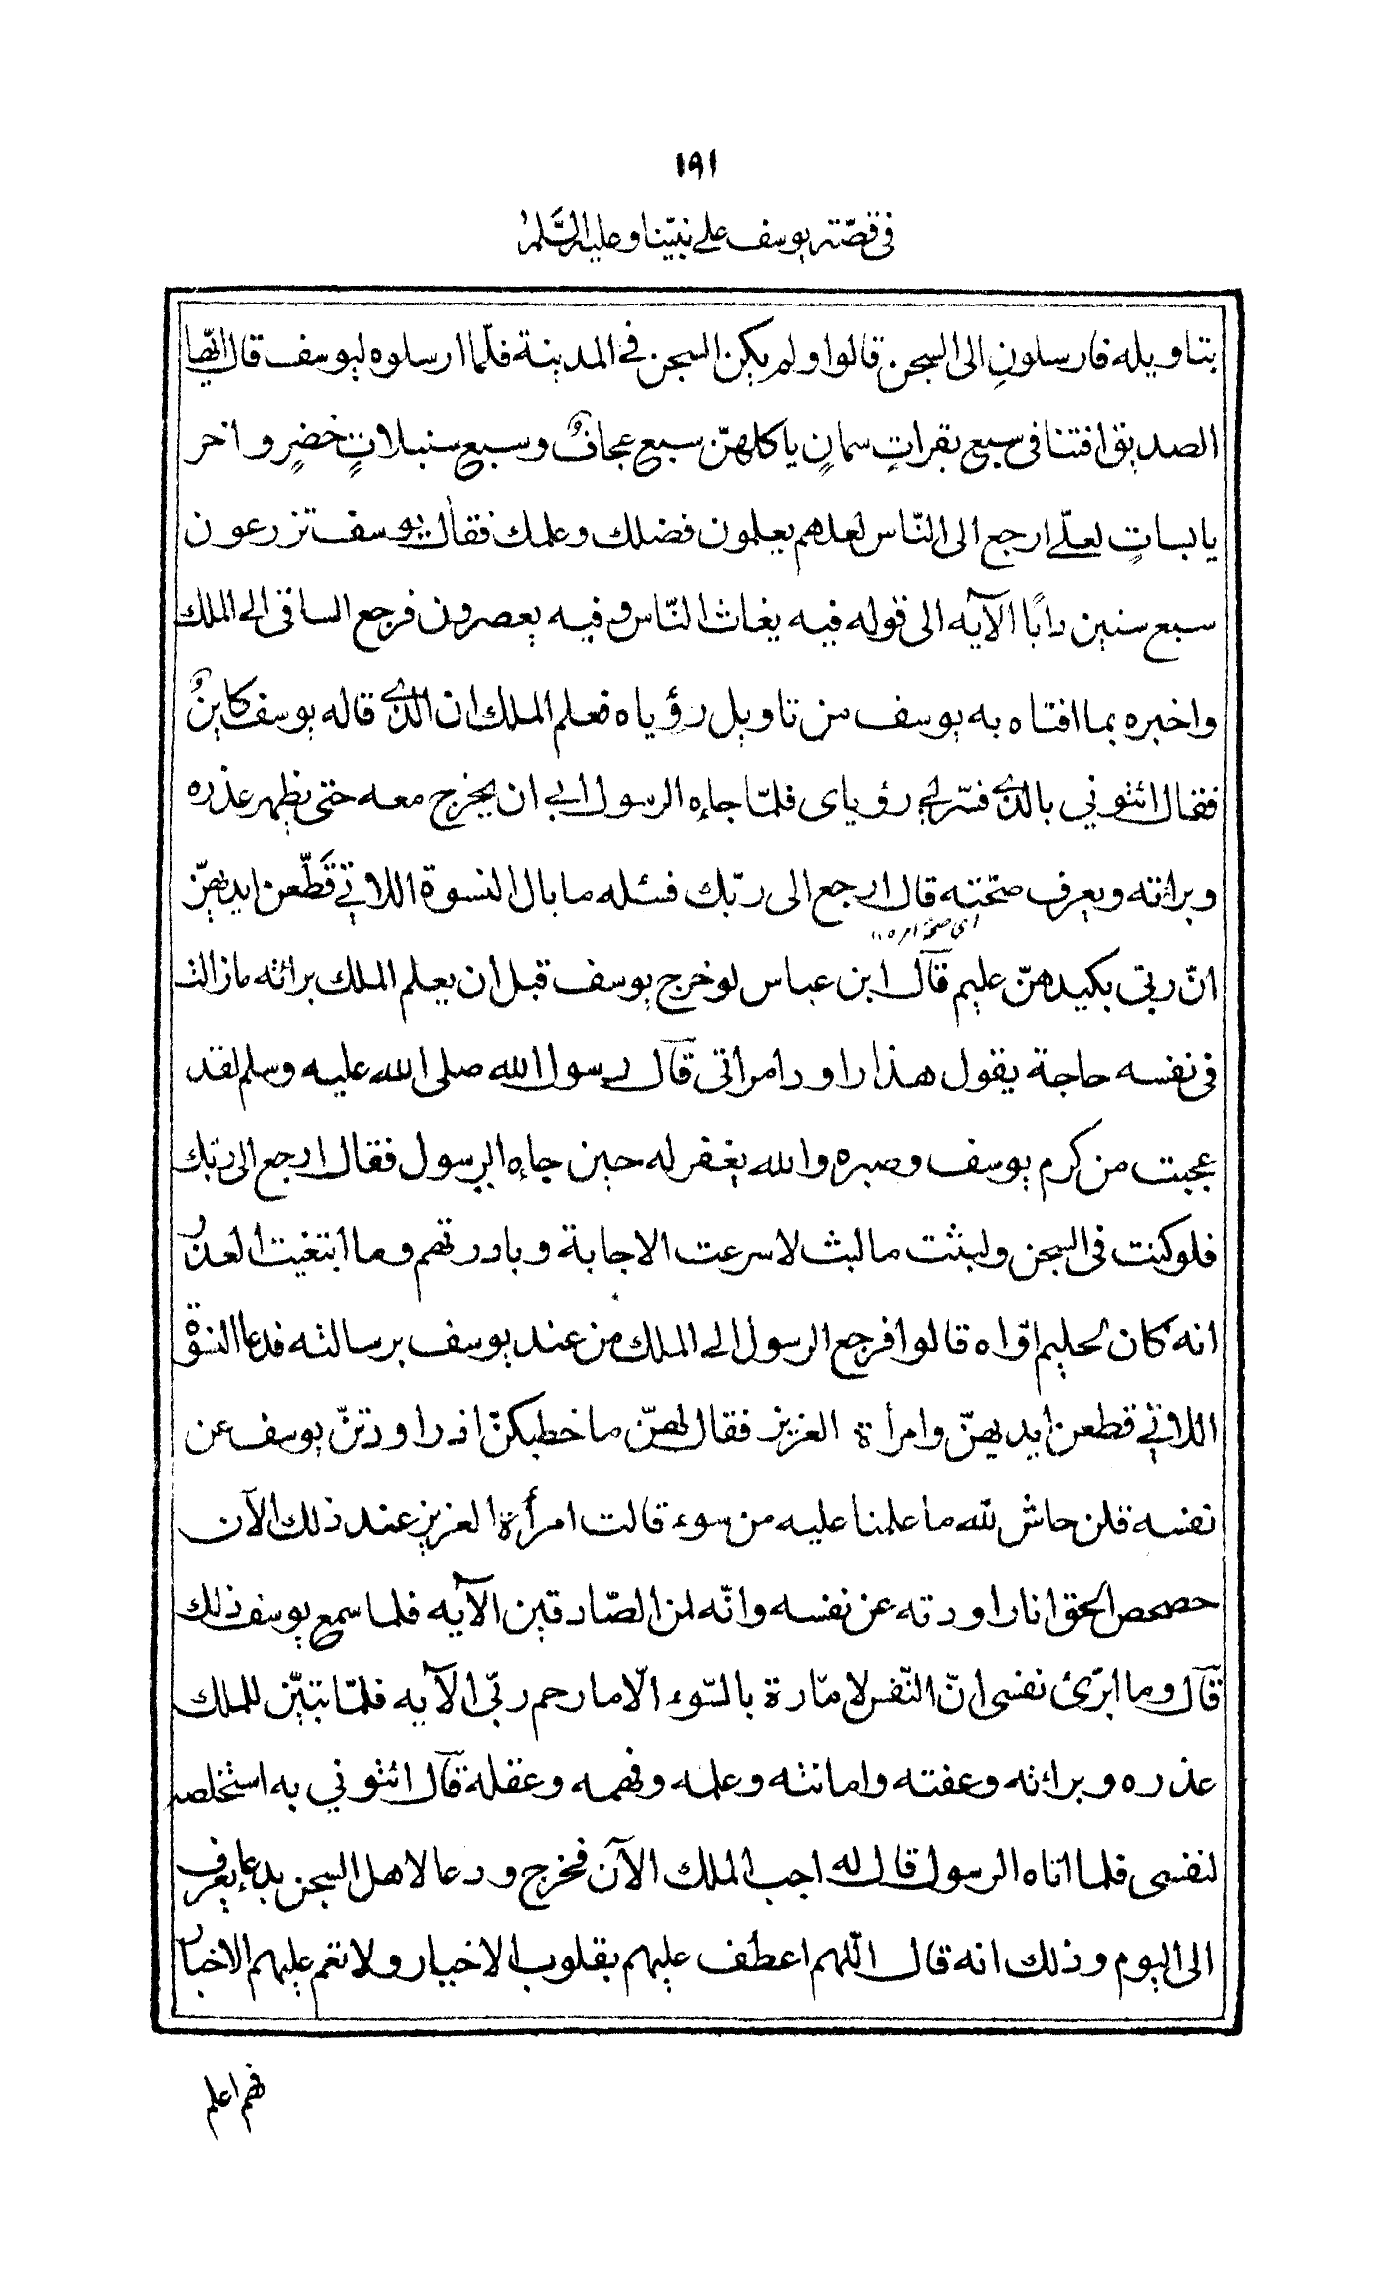 ١٩١
في قصّته يوسف على نبيّنا وعليه السّلم
بتاويله فارسلونِ الى السجن قالوا ولم يكن السجن في المدينة فلمّا ارسلوه ليوسف قال ايّها
الصديق افتنا فى سبع بقراتٍ سمانٍ ياكلهنّ سبع عجافٌ وسبع سنبلاتٍ خضرٍ واخر
يابساتٍ لعلّى ارجع الى النّاس لعلهم يعلمون فضلك وعلمك فقال يوسف تزرعون
سبع سنين دابًا الآيه الى قوله فيه يغاث النّاس وفيه يعصرون فرجع الساقى الى الملك
واخبره بما افتاه به يوسف من تاويل رؤياه فعلم الملك ان الذى قاله يوسف كاينٌ
فقال ائتوني بالذى فسّر لى رؤياى فلمّا جاءه الرسول ابى ان يخرج معه حتى يظهر عذره
وبرائته ويعرف صحّته قال ارجع الى ربّك فسئله ما بال النسوة اللاتى قَطّعن ايديهنّ
اى صحة امره ١١
انّ ربّى بكيدهنّ عليم قال ابن عباس لو خرج يوسف قبل ان يعلم الملك برائته مازالت
فى نفسه حاجة يقول هذا راود امراتى قال رسول الله صلى الله عليه وسلم لقد
عجبت من كرم يوسف وصبره والله يغفر له حين جاءه الرسول فقال ارجع الى ربّك
فلو كنت فى السجن ولبثت ما لبث لاسرعت الاجابة وبادرتهم وما ابتغيت العذر
انه كان لحليم اوّاه قالوا فرجع الرسول الى الملك من عند يوسف برسالته فدعا النسوة
اللاتى قطعن ايديهنّ وامرأة العزيز فقال لهنّ ما خطبكنّ اذ راودتنّ يوسف عن
نفسه قلن حاش لله ما علمنا عليه من سوء قالت امرأة العزيز عند ذلك الآن
حصحص الحق انا راودته عن نفسه وانّه لمن الصّادقين الآيه فلما سمع يوسف ذلك
قال وما ابرّئ نفسى انّ النّفس لامّارة بالسّوء الّا ما رحم ربّى الآيه فلمّا تبيّن للملك
عذره وبرائته وعفته وامانته وعلمه وفهمه وعقله قال ائتوني به استخلصه
لنفسى فلما اتاه الرسول قال له اجب الملك الآن فخرج ودعا لاهل السجن بدعاء يعرف
الى اليوم وذلك انه قال اللّهم اعطف عليهم بقلوب الاخيار ولا تعم عليهم الاخبار
فهم اعلم